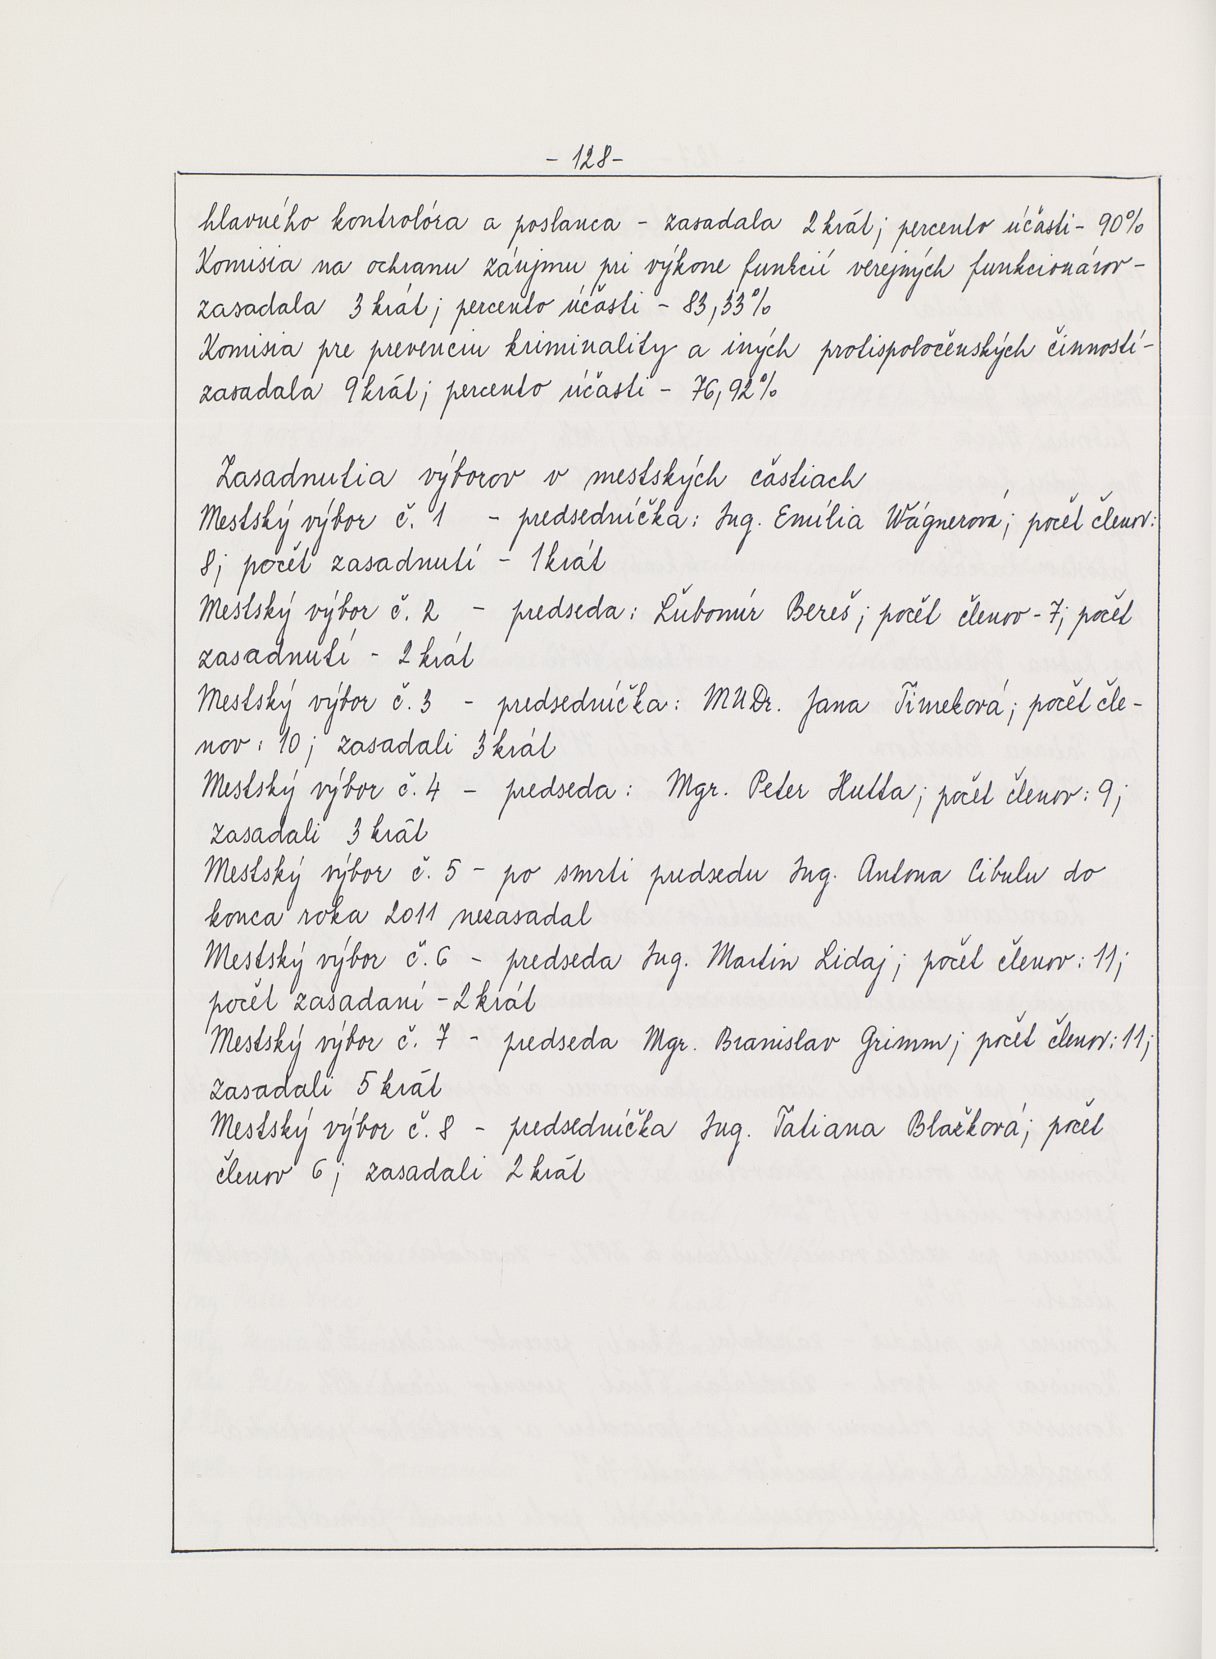 - 128-
hlavného kontrolóra a poslanca - zasadala 2 krát; percento účasti - 90%
Komisia na ochranu záujmu pri výkone funkcií verejných funkcionárov -
zasadala 3 krát; percento účasti - 83,33%
Komisia pre prevenciu kriminality a iných protispoločenských činností -
zasadala 9 krát; percento účasti - 76,92%
Zasadnutia výborov v mestských častiach
Mestský výbor č. 1 - predsedníčka: Ing. Emília Wágnerová; počet členov:
8; počet zasadnutí - 1 krát
Mestský výbor č. 2 - predseda: Ľubomír Bereš; počet členov - 7; počet
zasadnutí - 2 krát
Mestský výbor č. 3 - predsedníčka: MUDr. Jana Timeková; počet čle-
nov: 10; zasadali 3 krát
Mestský výbor č. 4 - predseda: Mgr. Peter Hutta; počet členov: 9;
zasadali 3 krát
Mestský výbor č. 5 - po smrti predsedu Ing. Antona Cibulu do
konca roka 2011 nezasadal
Mestský výbor č. 6 - predseda Ing. Martin Lidaj; počet členov: 11;
počet zasadaní - 2 krát
Mestský výbor č. 7 - predseda Mgr. Branislav Grimm; počet členov: 11;
zasadali 5 krát
Mestský výbor č. 8 - predsedníčka Ing. Tatiana Blažková; počet
členov 6; zasadali 2 krát